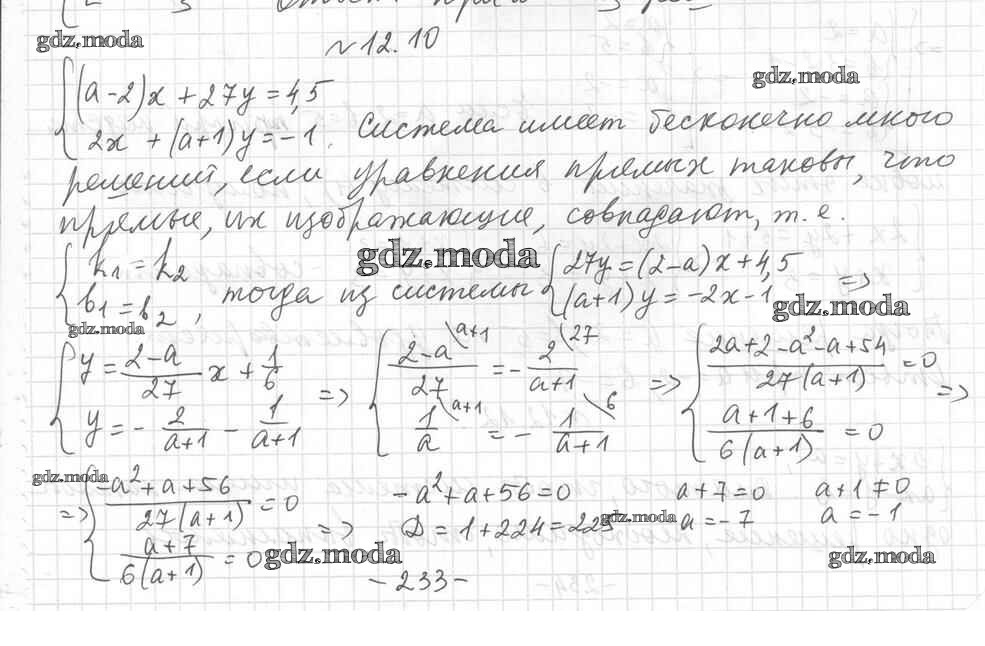 gdz.moda
№ 12.10
gdz.moda
(a-2)x + 27y = 4,5
2x + (a+1)y = -1. Система имеет бесконечно много
решений, если уравнения прямых таковы, что
прямые, их изображающие, совпадают, т.е.
gdz.moda
{ k₁ = k₂ b₁ = b₂, тогда из системы { 27y = (2-a)x + 4,5 (a+1)y = -2x - 1 =>
gdz.moda
gdz.moda
{ y = (2-a)/27 x + 1/6 y = - 2/(a+1) - 1/(a+1) => { (2-a)/27 \a+1 = - 2/(a+1) \27 1/a \a+1 = - 1/(a+1) \6 => { (2a+2-a²-a+54)/(27(a+1)) = 0 (a+1+6)/(6(a+1)) = 0 =>
gdz.moda
=> { (-a²+a+56)/(27(a+1)) = 0 (a+7)/(6(a+1)) = 0 => -a²+a+56=0 a+7=0 a+1≠0
D = 1+224=225 a=-7 a=-1
gdz.moda
gdz.moda
gdz.moda
- 233 -